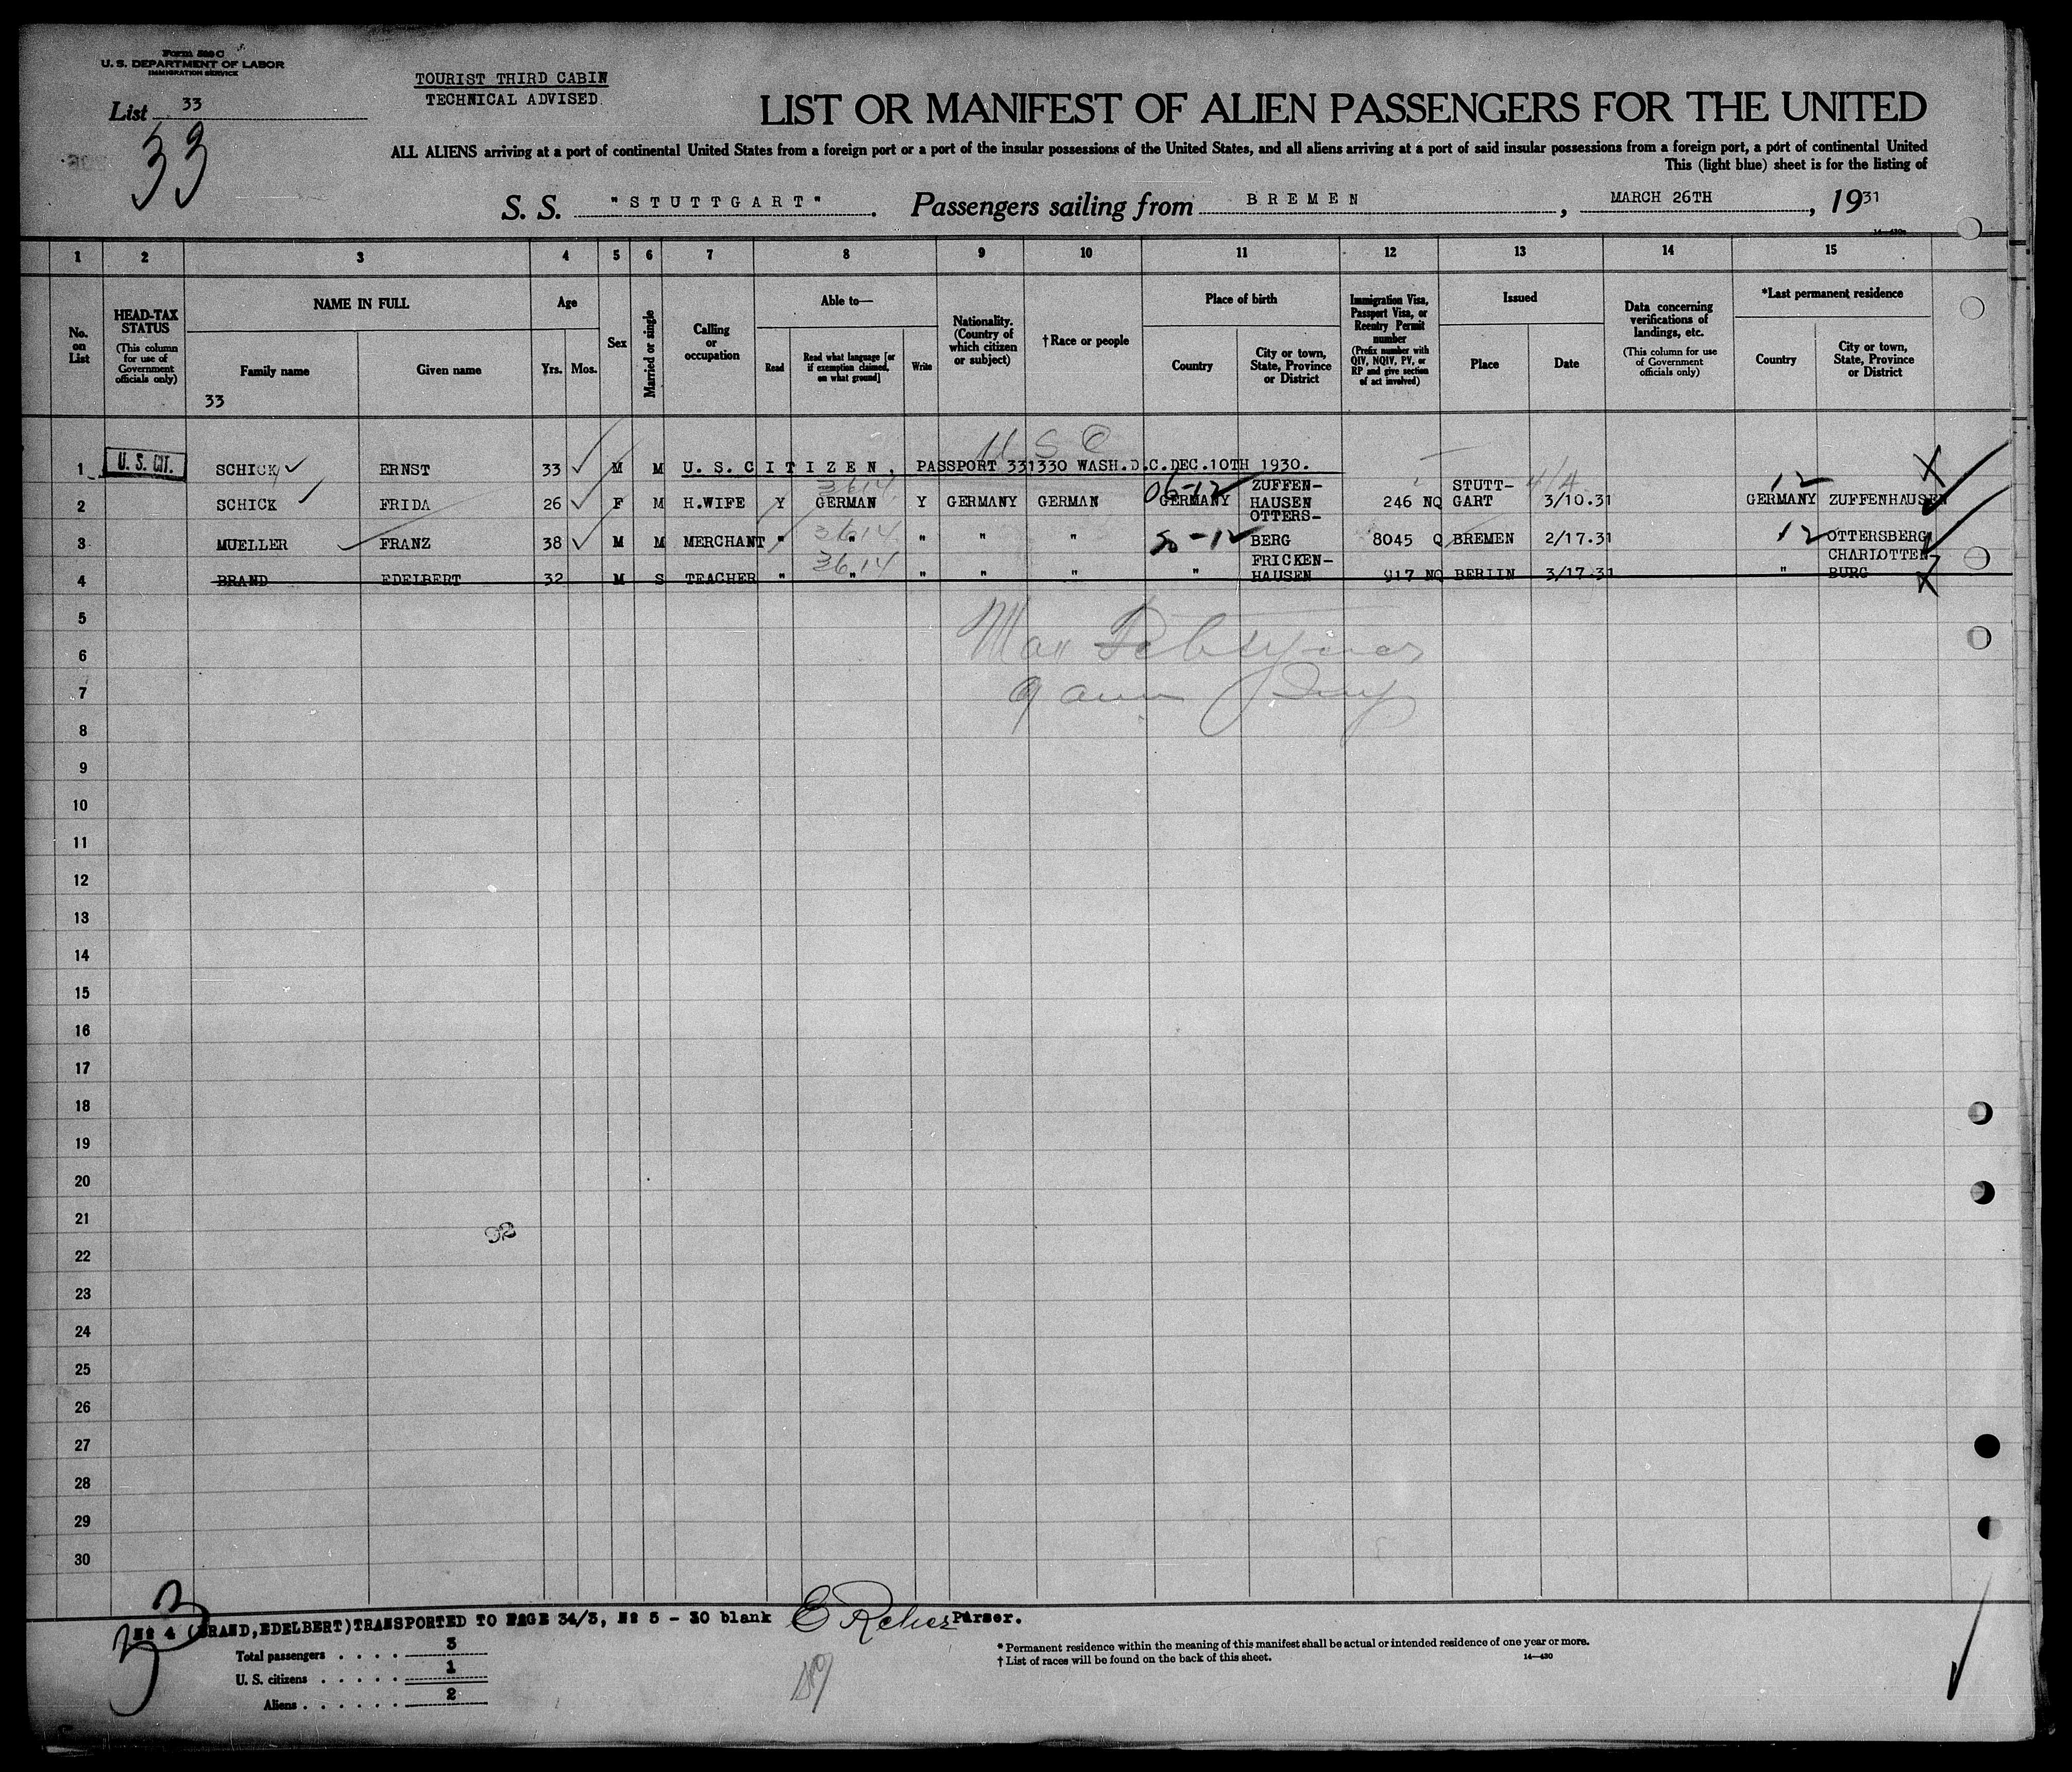 Form 500 C
U. S. DEPARTMENT OF LABOR
IMMIGRATION SERVICE
List 33
33
TOURIST THIRD CABIN
TECHNICAL ADVISED
LIST OR MANIFEST OF ALIEN PASSENGERS FOR THE UNITED
ALL ALIENS arriving at a port of continental United States from a foreign port or a port of the insular possessions of the United States, and all aliens arriving at a port of said insular possessions from a foreign port, a port of continental United
This (light blue) sheet is for the listing of
S. S. "STUTTGART". Passengers sailing from BREMEN, MARCH 26TH, 1931
14—430a
1 2 3 4 5 6 7 8 9 10 11 12 13 14 15
No. on List
HEAD-TAX STATUS (This column for use of Government officials only)
NAME IN FULL
Family name
Given name
33
Age
Yrs. Mos.
Sex
Married or single
Calling or occupation
Able to—
Read
Read what language [or if exemption claimed, on what ground]
Write
Nationality. (Country of which citizen or subject)
†Race or people
Place of birth
Country
City or town, State, Province or District
Immigration Visa, Passport Visa, or Reentry Permit number (Prefix number with QIV, NQIV, PV, or RP and give section of act involved)
Issued
Place
Date
Data concerning verifications of landings, etc. (This column for use of Government officials only)
*Last permanent residence
Country
City or town, State, Province or District
U S C
1 U. S. CIT. SCHICK ERNST 33 M M U. S. CITIZEN, PASSPORT 331330 WASH.D.C.DEC.10TH 1930. X
3614 06-12 4/4 12
2 SCHICK FRIDA 26 F M H.WIFE Y GERMAN Y GERMANY GERMAN GERMANY ZUFFEN-HAUSEN 246 NQ STUTT-GART 3/10.31 GERMANY ZUFFENHAUSEN
3614 12
3 MUELLER FRANZ 38 M M MERCHANT " " " " " OTTERS-BERG 8045 Q BREMEN 2/17.31 OTTERSBERG
3614
4 BRAND EDELBERT 32 M S TEACHER " " " " " " FRICKEN-HAUSEN 917 NQ BERLIN 3/17.31 " CHARLOTTEN BURG X
5
6
7
8
9
10
11
12
13
14
15
16
17
18
19
20
21
22
23
24
25
26
27
28
29
30
33
No 4 (BRAND,EDELBERT)TRANSPORTED TO PAGE 34/3, No 5 - 30 blank Purser.
Total passengers . . . . 3
U. S. citizens . . . . . 1
Aliens . . . . . . 2
* Permanent residence within the meaning of this manifest shall be actual or intended residence of one year or more.
† List of races will be found on the back of this sheet.
14—430